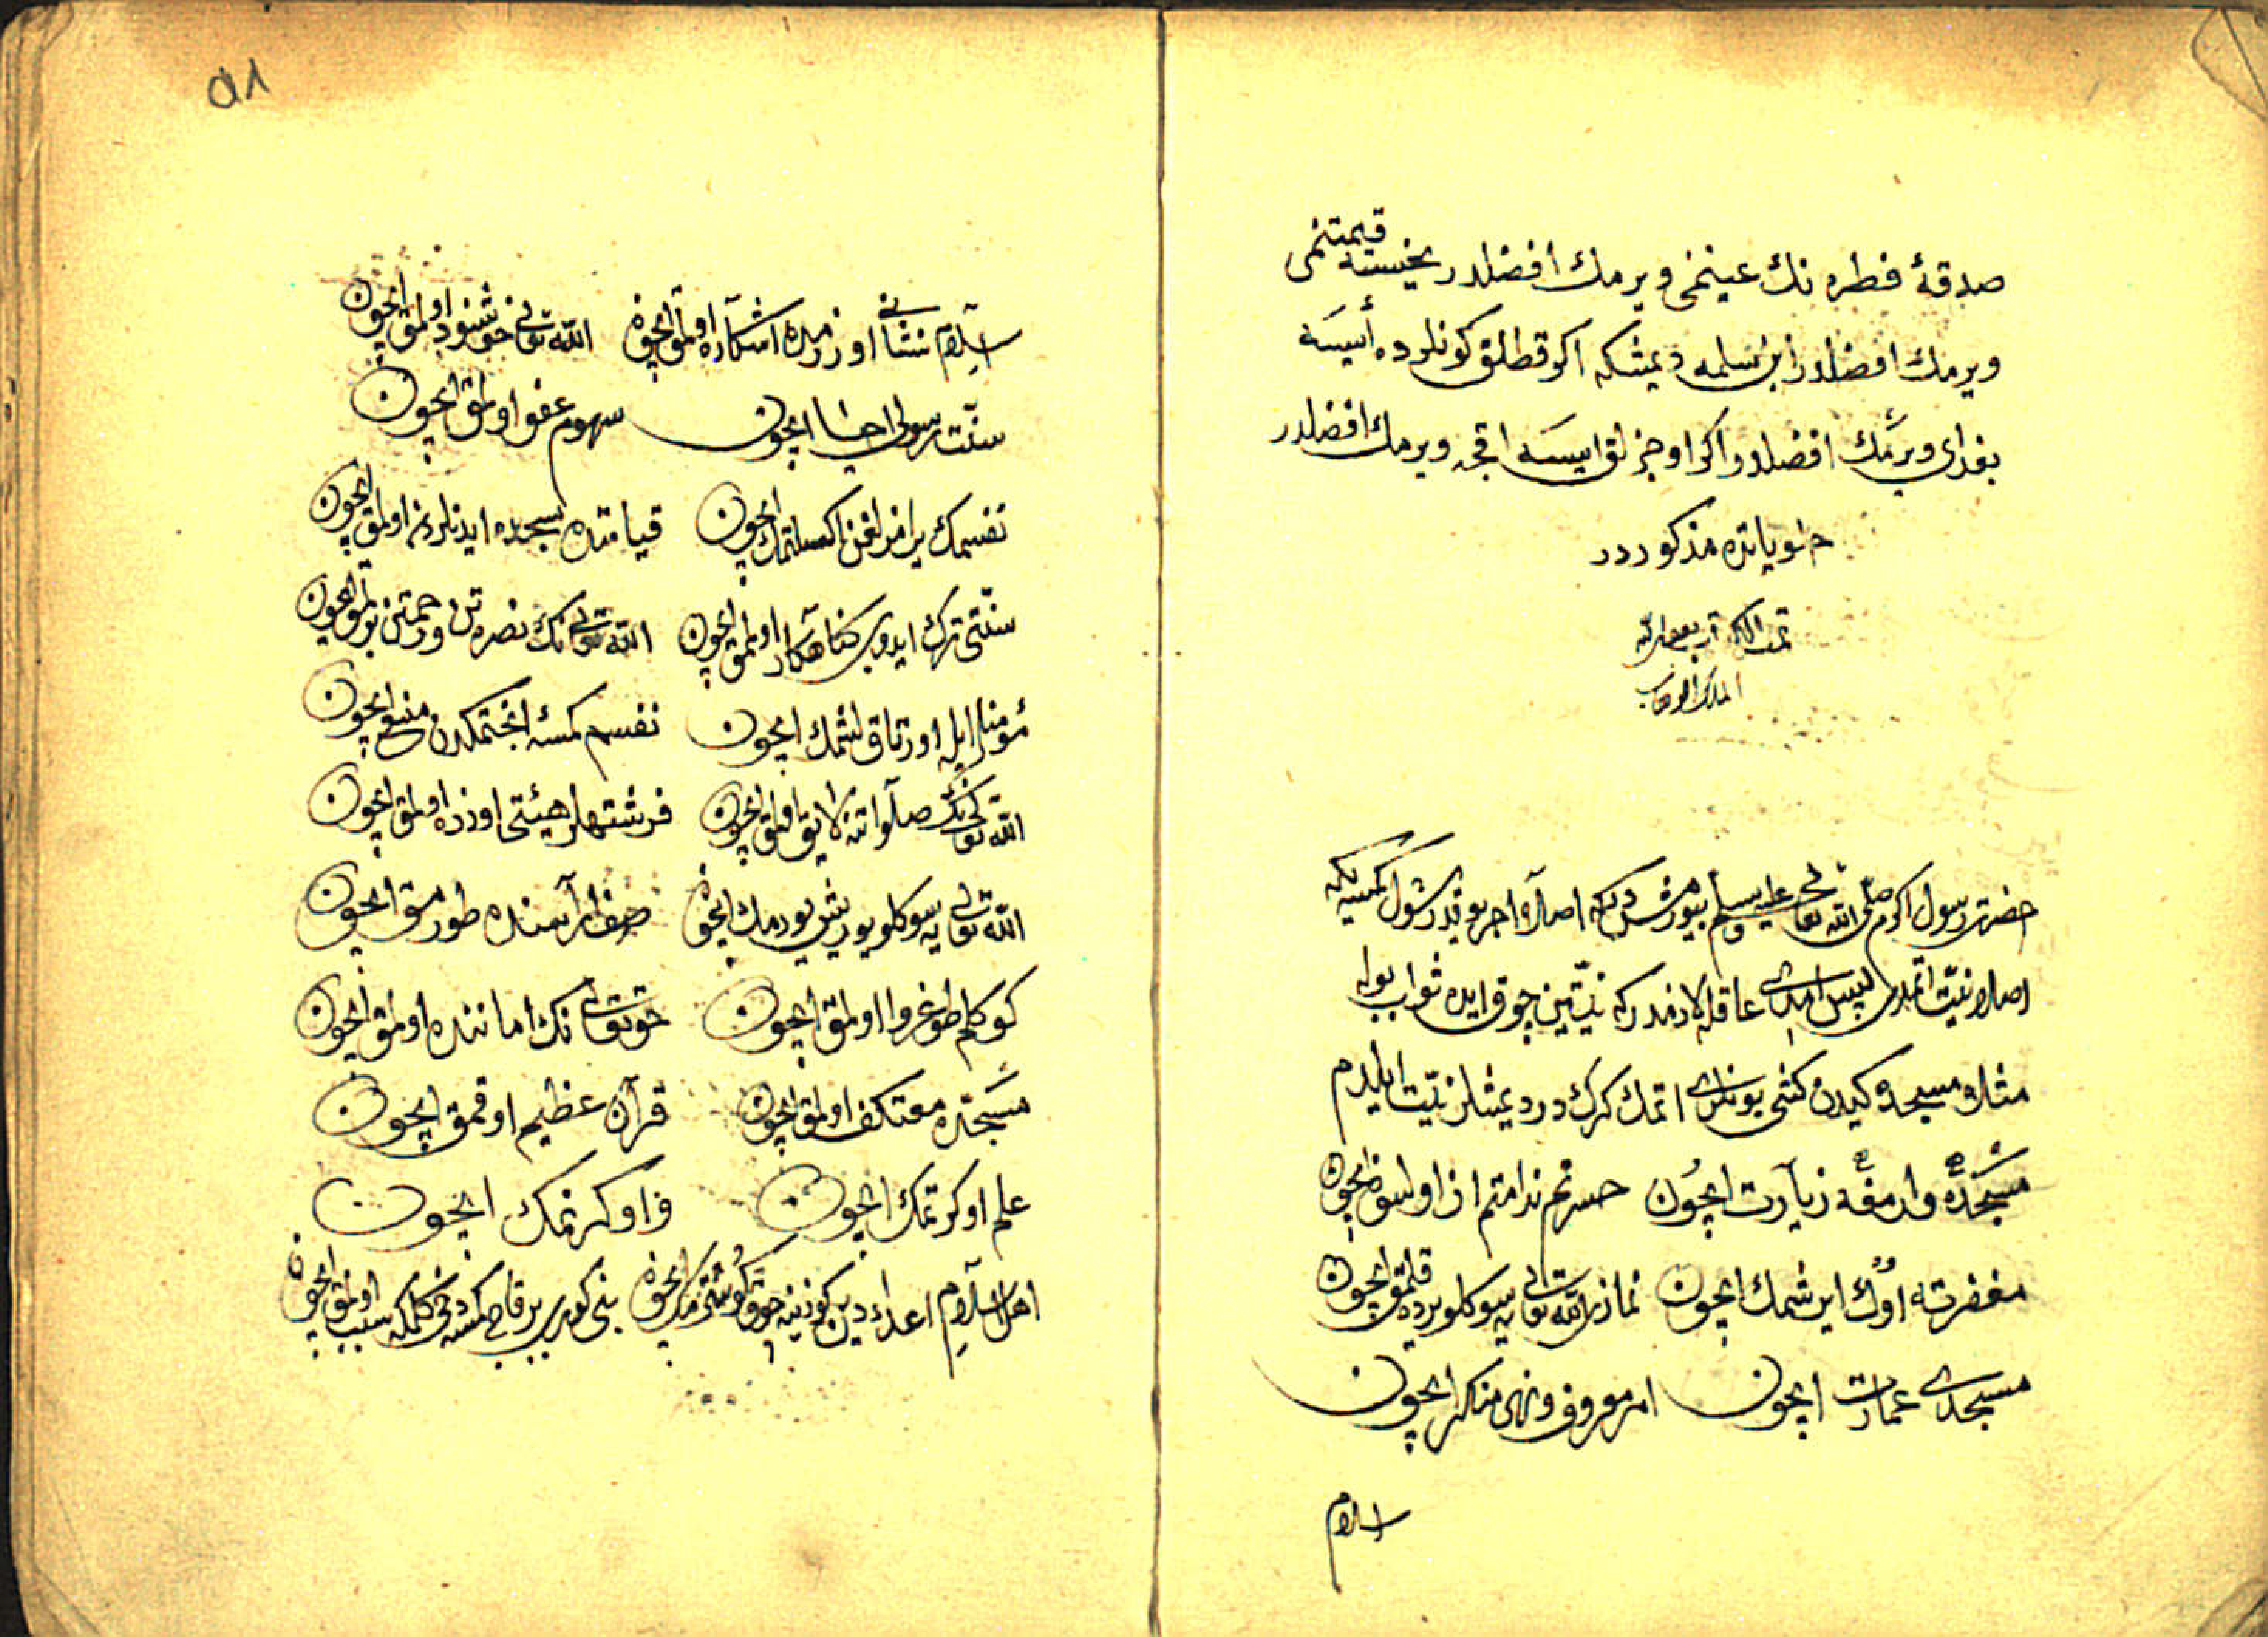 صدقۀ فطره نك عيننمى ويرمك افضلدر يخسه قيمتنمى
ويرمك افضلدر ابن سلمه ديمشكه اكر قطلق كونلرده ايسه
بغداى ويرمك افضلدر اكر اوجزلق ايسه اقچه ويرمك افضلدر
مذكوردر
تمت الكتاب بعون الله
الملك الوهاب
حضرت رسول اكرم صلى الله تعالى عليه وسلم بيورمشدركه اصلا اجر يوقدر شول كمسيه كه
اصلا نيت اتمدى پس امدى عاقله لازمدركه نيتين چوق ايده ثواب بوله
مثلا مسجده كيدن كشى بونلرى اتمك كركدر ديمشلر نيت ايلدم
مسجده وارمغه زيارت ايچون حسرتم ندامتم از اولسون ايچون
مغفرته اوك ايرشمك ايچون نمازى الله تعالى يه سوكلو يرده قلمق ايچون
مسجدى عمارت ايچون امر معروف ونهى منكر ايچون
اسلام
٥٨
اسلام نشانى اوزرمده اشكاره اولمق ايچون الله تعالى خوشنود اولمق ايچون
سنت رسولى احيا ايچون سهوم عفو اولمق ايچون
نفسمك يرامزلغن اكسلتمك ايچون قيامتده سجده ايدنلردن اولمق ايچون
سنتى ترك ايدوب كناهكار اولمق ايچون الله تعالى نك نصرتن ورحمتن بولمق ايچون
مؤمنلر ايله اورتاقلشمك ايچون نفسم كمسه انجتمكدن منع ايچون
الله تعالى نك صلواتنه لايق اولمق ايچون فرشتهلر هيئتى اوزره اولمق ايچون
الله تعالى يه سوكلو يوريش يوريمك ايچون صفلر آراسنده طورمق ايچون
كوكلم طوغروا اولمق ايچون حق تعالى نك اماننده اولمق ايچون
مسجده معتكف اولمق ايچون قرآن عظيم اوقمق ايچون
علم اوكرتمك ايچون و اوكرنمك ايچون
اهل اسلام اعداء دين كوزينه چوق كوسترمك ايچون بنى كورب برقاچ كمسه دخى كلمكه سبب اولمق ايچون